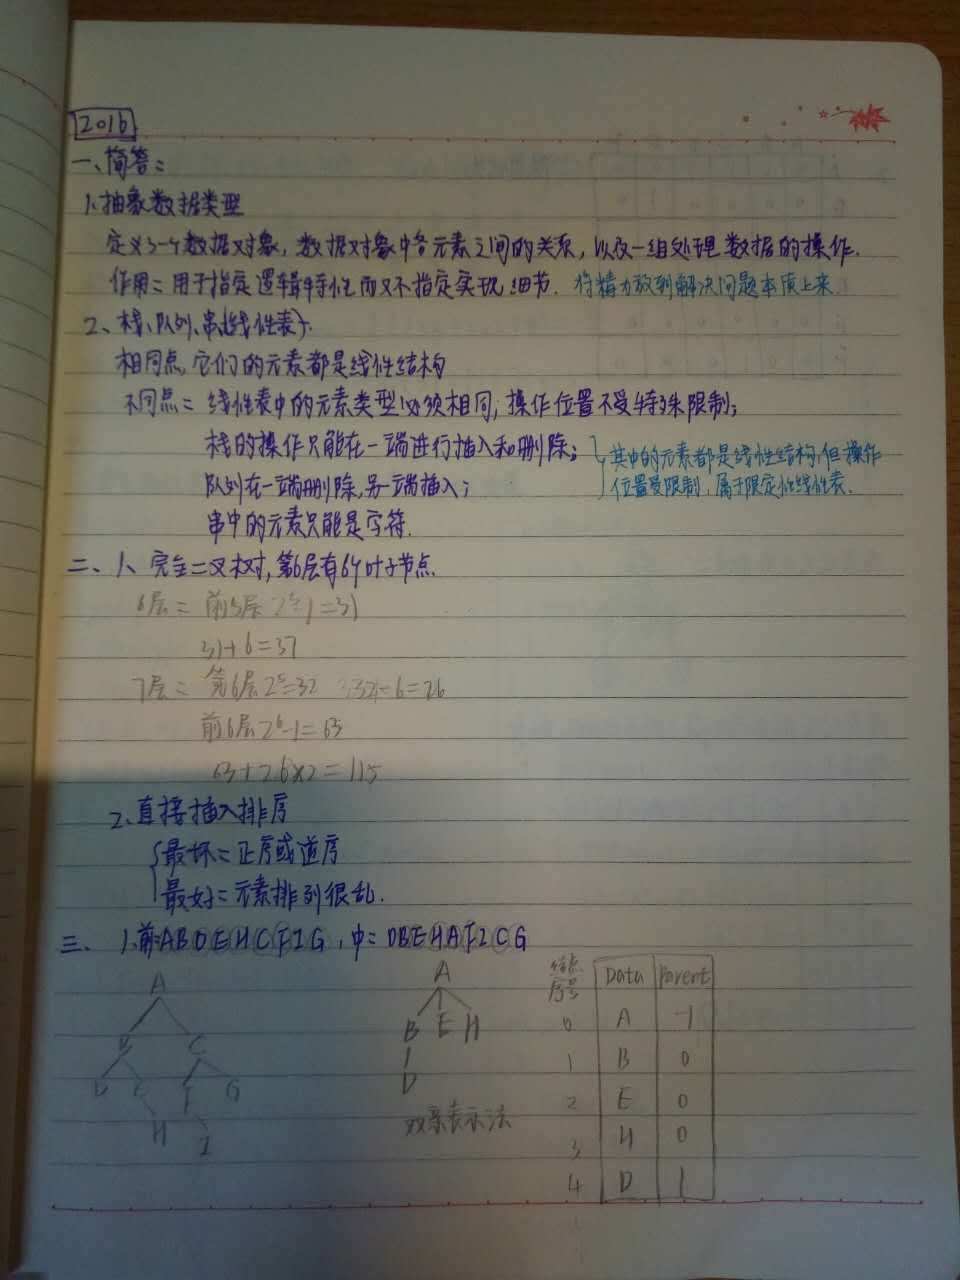 2016
一、简答:
1、抽象数据类型
定义了一个数据对象, 数据对象中各元素之间的关系, 以及一组处理数据的操作.
作用: 用于指定逻辑特性而又不指定实现细节. 将精力放到解决问题本质上来.
2、栈、队列、串(线性表).
相同点: 它们的元素都是线性结构
不同点: 线性表中的元素类型必须相同, 操作位置不受特殊限制;
栈的操作只能在一端进行插入和删除;
队列在一端删除, 另一端插入;
其中的元素都是线性结构, 但操作
位置受限制, 属于限定性线性表.
串中的元素只能是字符.
二、1、完全二叉树, 第6层有6个叶子节点.
6层: 前5层 2⁵-1=31
31+6=37
7层: 第6层2⁵=32 32-6=26
前6层2⁶-1=63
63+26×2=115
2、直接插入排序
最坏: 正序或逆序
最好: 元素排列很乱.
三、1、前: ABDEHCFIG, 中: DBEHAFICG
A
B C
D E F G
H I
A
B E H
D
双亲表示法
结点序号 Data Parent
0 A -1
1 B 0
2 E 0
3 H 0
4 D 1